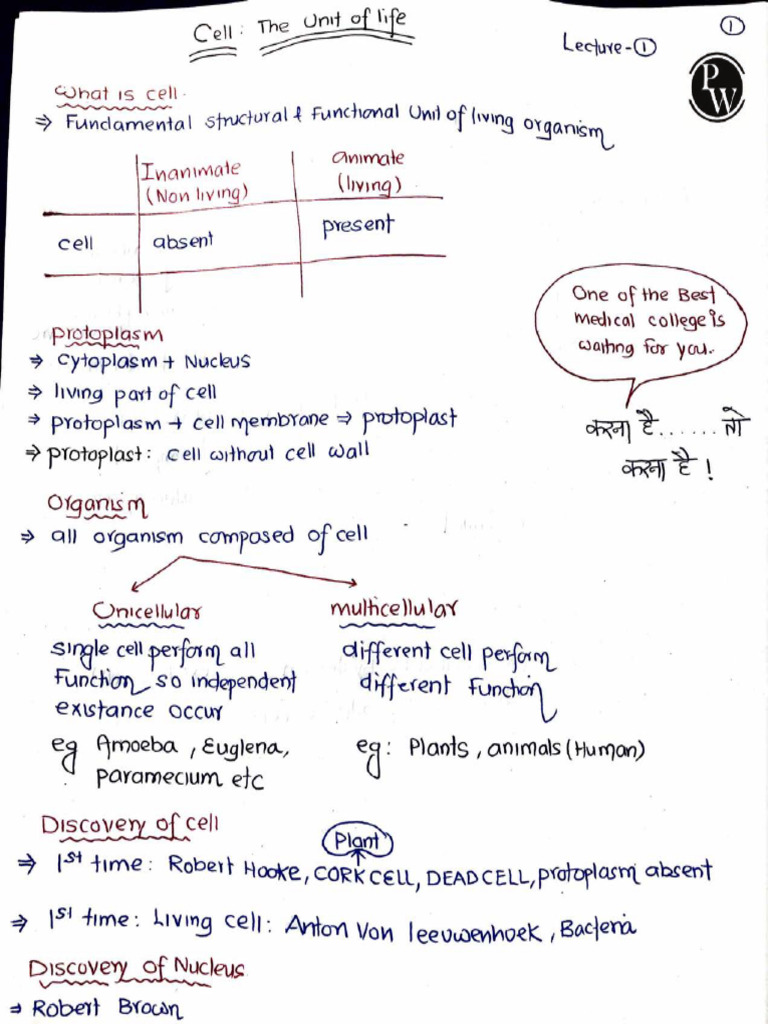 Cell: The Unit of life
①
Lecture-①
PW
What is cell.
⇒ Fundamental structural & Functional Unit of living organism
Inanimate (Non living)
animate (living)
cell absent present
One of the Best
medical college is
waiting for you.
करना है.......तो
करना है!
protoplasm
⇒ cytoplasm + Nucleus
⇒ living part of cell
⇒ protoplasm + cell membrane ⇒ protoplast
⇒ protoplast: cell without cell wall
Organism
⇒ all organism composed of cell
Unicellular
single cell perform all
Function so independent
existance occur
eg Amoeba, Euglena,
paramecium etc
multicellular
different cell perform
different Function
eg: Plants, animals (Human)
Discovery of cell
Plant
⇒ 1st time: Robert Hooke, CORK CELL, DEAD CELL, protoplasm absent
⇒ 1st time: Living cell: Anton Von leeuwenhoek, Bacteria
Discovery of Nucleus
⇒ Robert Brown